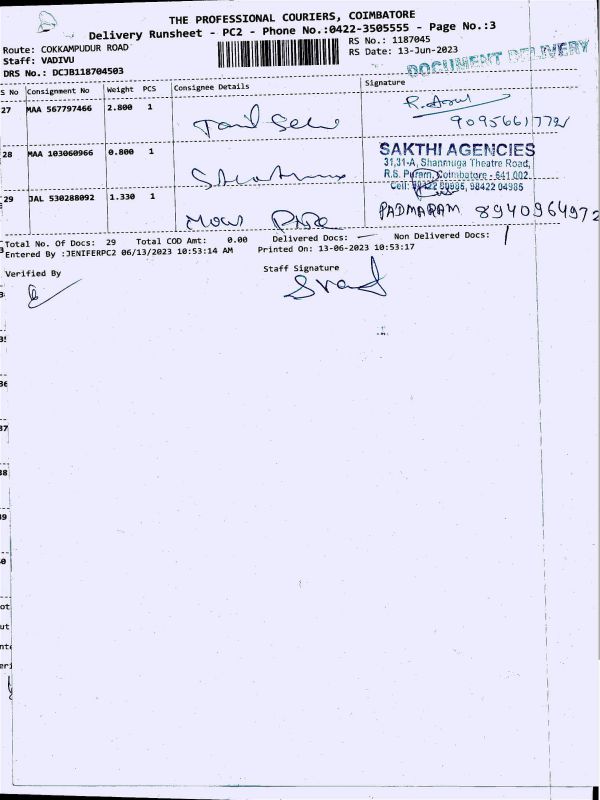 THE PROFESSIONAL COURIERS, COIMBATORE
Delivery Runsheet - PC2 - Phone No.:0422-3505555 - Page No.:3
Route: COKKAMPUDUR ROAD
RS No.: 1187045
Staff: VADIVU
RS Date: 13-Jun-2023
DRS No.: DCJB118704503
DOCUMENT DELIVERY
S No Consignment No Weight PCS Consignee Details Signature
27 MAA 567797466 2.800 1
9095661772
28 MAA 103060966 0.800 1
SAKTHI AGENCIES
31,31-A, Shanmuga Theatre Road,
R.S. Puram, Coimbatore - 641 002.
Cell: 98422 04985
29 JAL 530288092 1.330 1
PADMARAM 8940964972
Total No. Of Docs: 29 Total COD Amt: 0.00 Delivered Docs: Non Delivered Docs:
Entered By :JENIFERPC2 06/13/2023 10:53:14 AM Printed On: 13-06-2023 10:53:17
Verified By Staff Signature